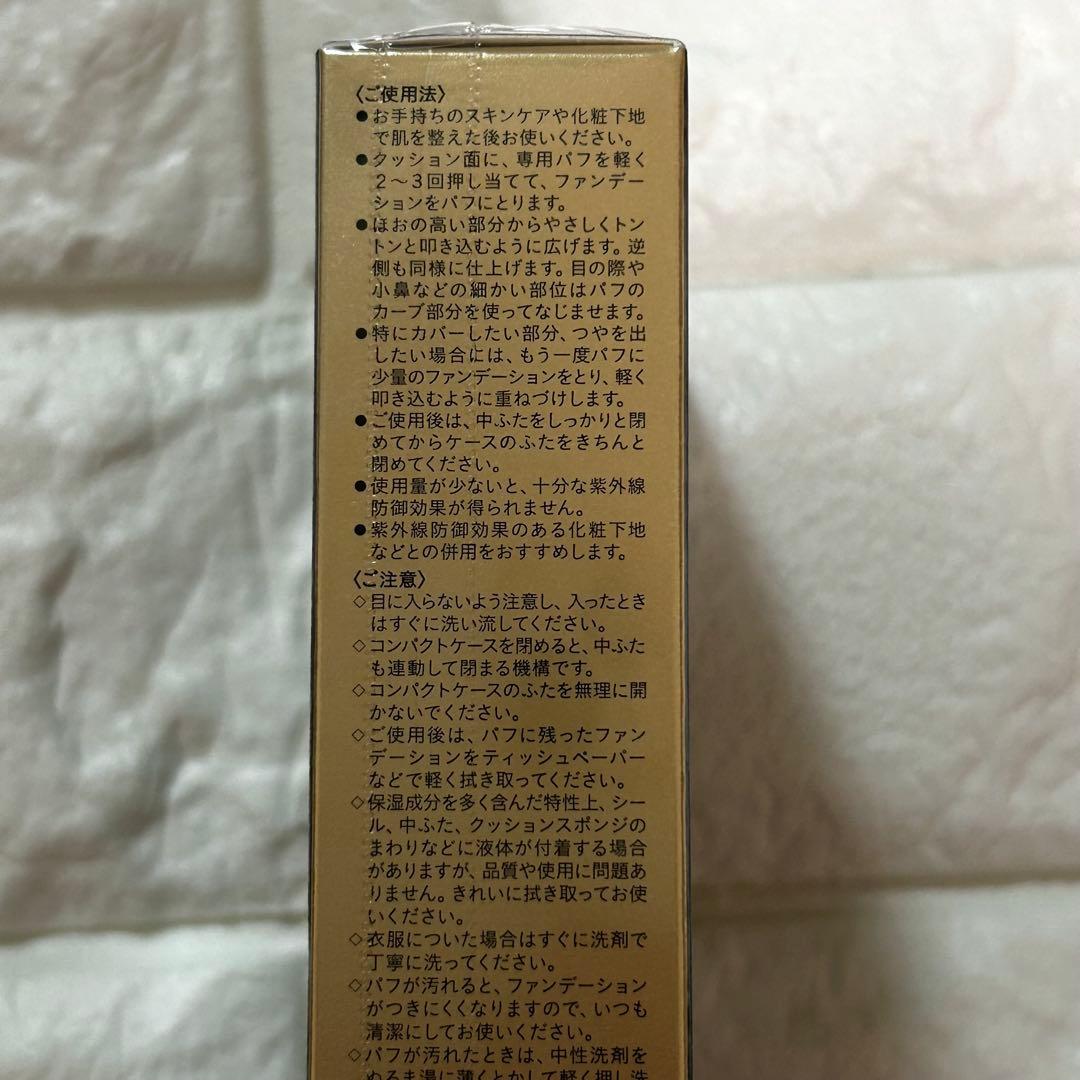 〈ご使用法〉
●お手持ちのスキンケアや化粧下地
で肌を整えた後お使いください。
●クッション面に、専用パフを軽く
２〜３回押し当てて、ファンデー
ションをパフにとります。
●ほおの高い部分からやさしくトン
トンと叩き込むように広げます。逆
側も同様に仕上げます。目の際や
小鼻などの細かい部位はパフの
カーブ部分を使ってなじませます。
●特にカバーしたい部分、つやを出
したい場合には、もう一度パフに
少量のファンデーションをとり、軽く
叩き込むように重ねづけします。
●ご使用後は、中ふたをしっかりと閉
めてからケースのふたをきちんと
閉めてください。
●使用量が少ないと、十分な紫外線
防御効果が得られません。
●紫外線防御効果のある化粧下地
などとの併用をおすすめします。
〈ご注意〉
◇目に入らないよう注意し、入ったとき
はすぐに洗い流してください。
◇コンパクトケースを閉めると、中ふた
も連動して閉まる機構です。
◇コンパクトケースのふたを無理に開
かないでください。
◇ご使用後は、パフに残ったファン
デーションをティッシュペーパー
などで軽く拭き取ってください。
◇保湿成分を多く含んだ特性上、シー
ル、中ふた、クッションスポンジの
まわりなどに液体が付着する場合
がありますが、品質や使用に問題あ
りません。きれいに拭き取ってお使
いください。
◇衣服についた場合はすぐに洗剤で
丁寧に洗ってください。
◇パフが汚れると、ファンデーション
がつきにくくなりますので、いつも
清潔にしてお使いください。
◇パフが汚れたときは、中性洗剤を
ぬるま湯に薄くとかして軽く押し洗